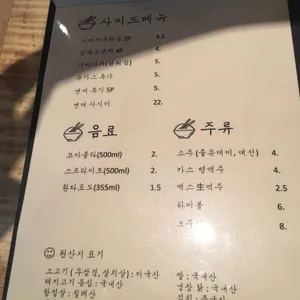 사이드메뉴
4.5
4.
5.
돈까스 추가 5.
연어 추가 5P 5.
연어 사시미 22.
음료
코카콜라(500ml) 2.
스프라이트(500ml) 2.
환타포도(355ml) 1.5
주류
소주 (좋은데이, 대선) 4.
카스 병맥주 4.
맥스 生맥주 3.5
하이볼 6.
8.
원산지 표기
소고기 (우삼겹, 살치살) : 미국산
돼지고기 등심 : 국내산
항정살 : 칠레산
쌀 : 국내산
냉장 닭 : 국내산
김치 : 중국산